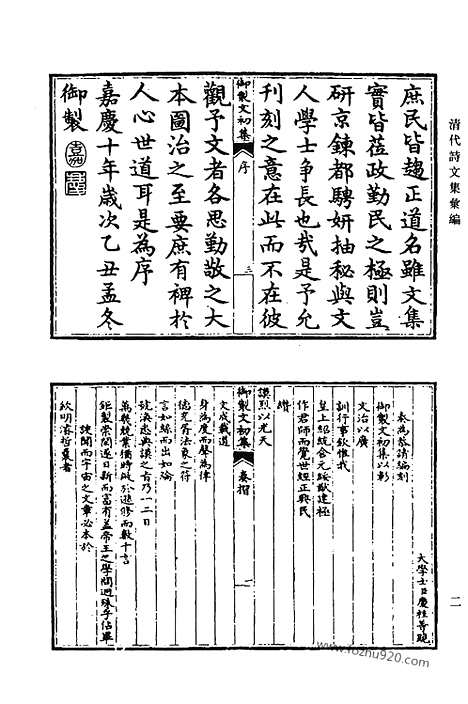 清代詩文集彙編
二
庶民皆趨正道名雖文集
實皆莅政勤民之極則豈
研京鍊都騁妍抽秘與文
人學士爭長也哉是予允
刊刻之意在此而不在彼
御製文初集 序 三
觀予文者各思勤敬之大
本圖治之至要庶有裨於
人心世道耳是為序
嘉慶十年歲次乙丑孟冬
御製
大學士臣慶桂等跪
奏為恭請編刻
御製文初集以彰
文治以廣
訓行事欽惟我
皇上紹統合元綏猷建極
作君師而覺世經正興民
纘
謨烈以光天
御製文初集 奏摺 一
文成載道
身為度而聲為律
德充符法象之符
言如絲而出如綸
號渙悉典謨之旨乃一二日
萬幾兢業猶時敏於進修而數十言
鉅製崇閎遂日新而富有蓋帝王之學問迥殊乎佔畢
諛聞而宇宙之文章必本於
欽明濬哲稟者
www.fozhu920.com